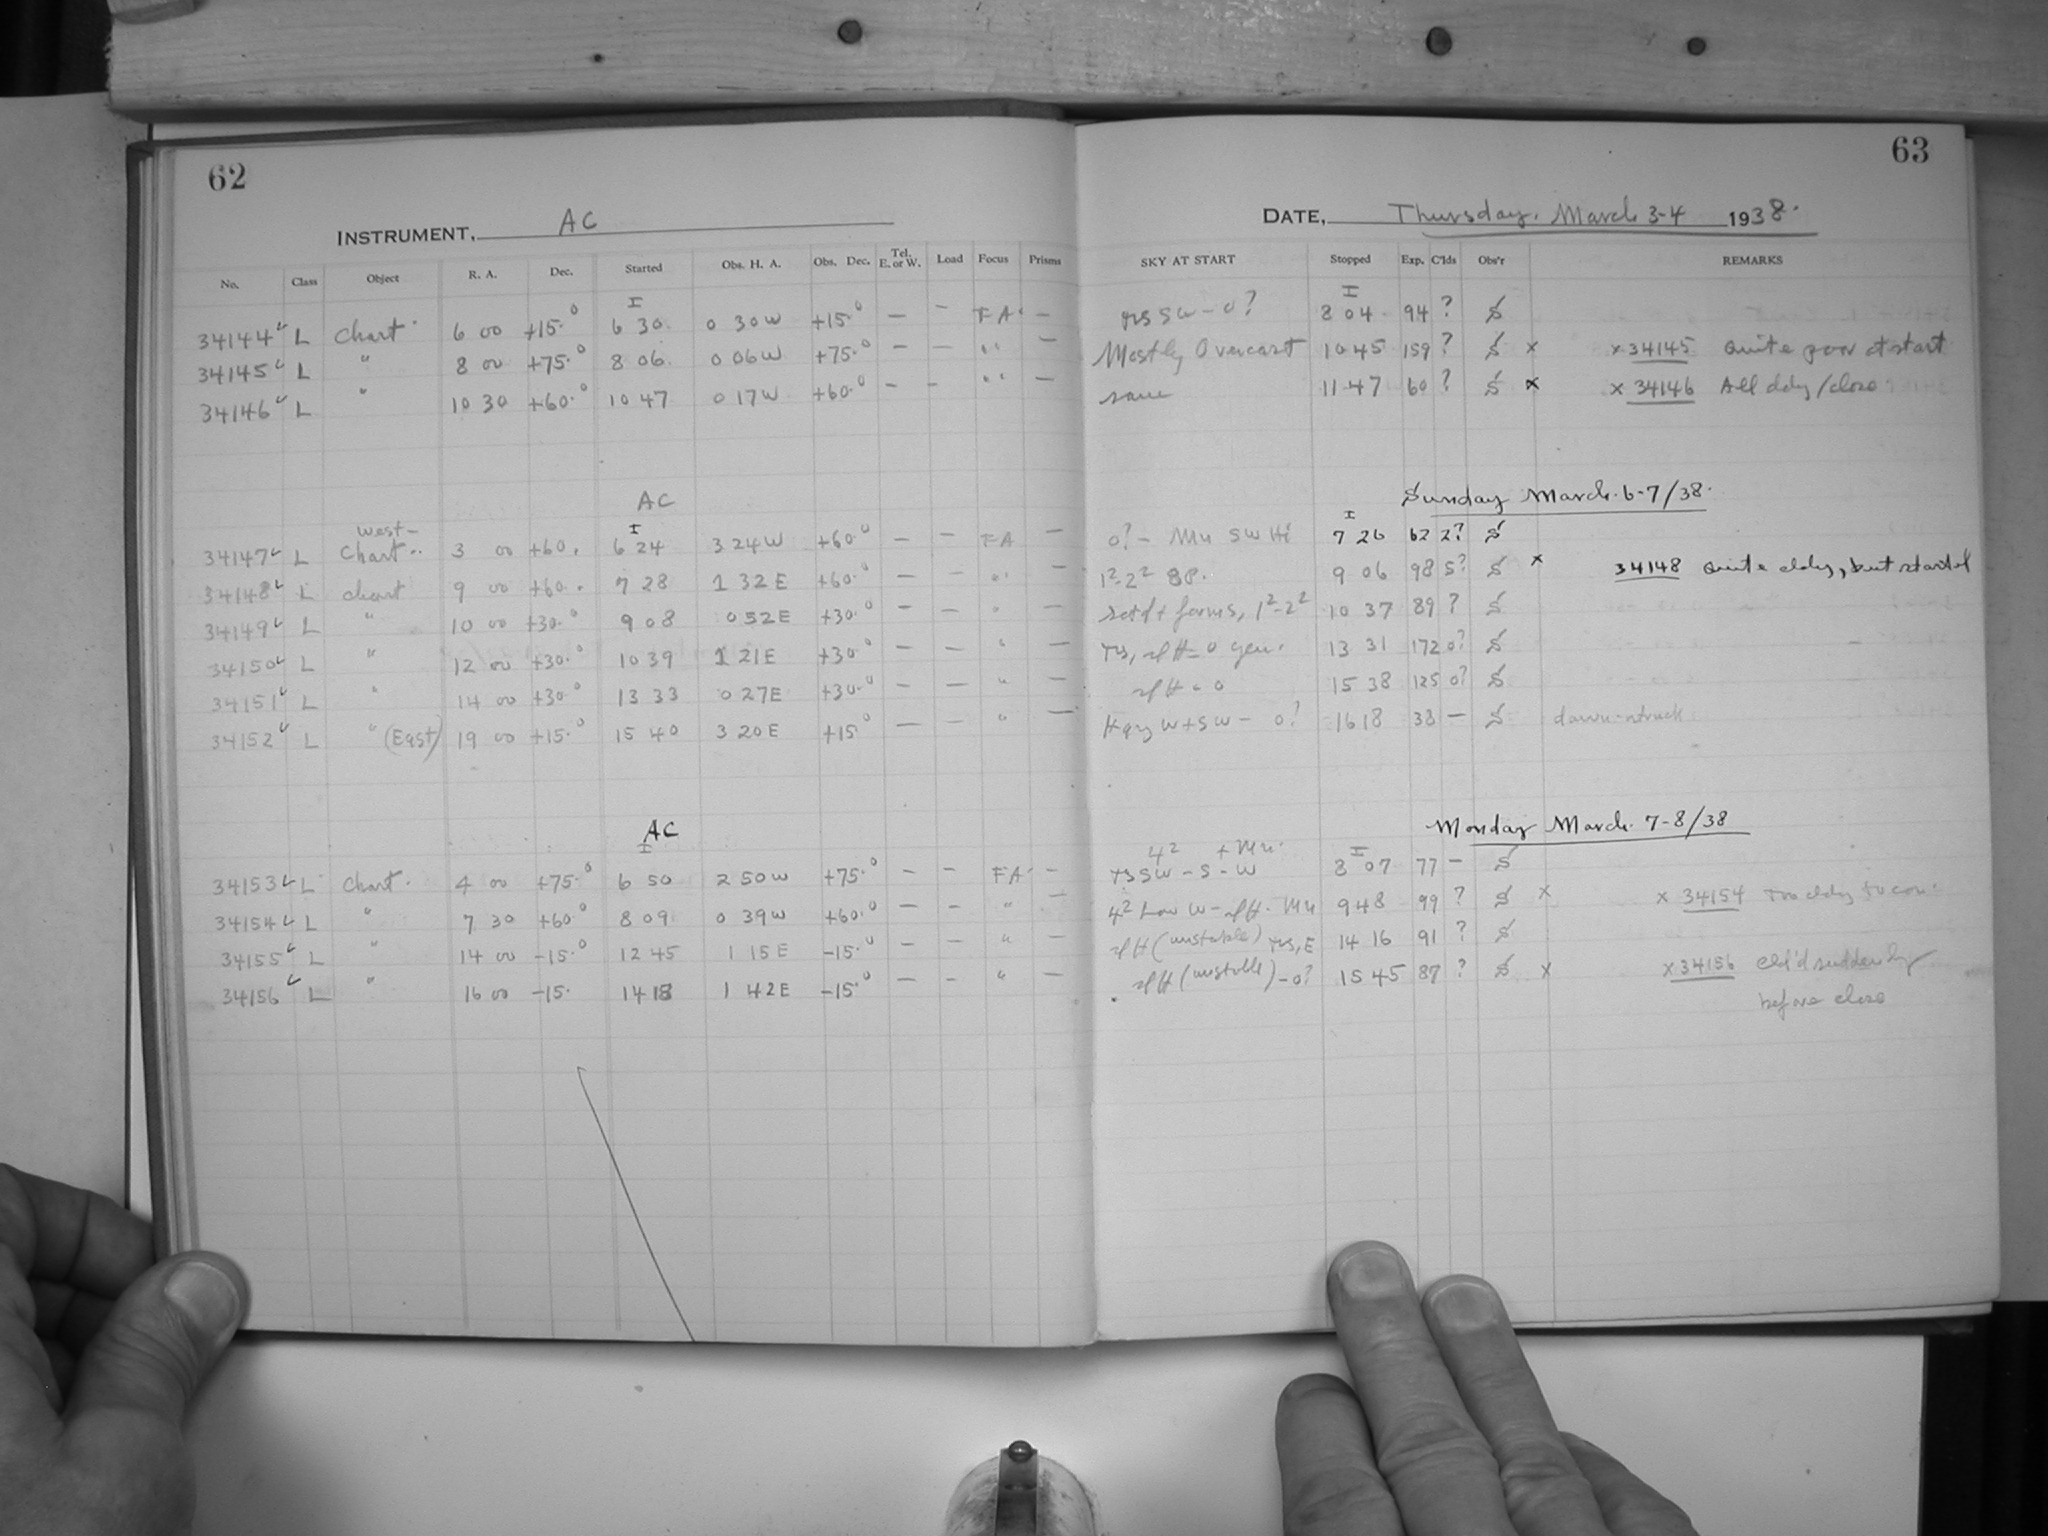 62
63
INSTRUMENT, AC
DATE, Thursday, March 3-4 1938.
No. Class Object R. A. Dec. Started Obs. H. A. Obs. Dec. Tel. E. or W. Load Focus Prisms SKY AT START Stopped Exp. C'lds Obs'r REMARKS
34144 L Chart 6 00 +15.° 6 30 0 30W +15.° — — FA — SW - 0? 8 04 94 ? S
34145 L " 8 00 +75.° 8 06 0 06W +75.° — — " — Mostly Overcast 10 45 159 ? S x x 34145 Quite poor at start
34146 L " 10 30 +60.° 10 47 0 17W +60.° — — " — same 11 47 60 ? S x x 34146 All cldy/close
AC Sunday March 6-7/38.
west-
34147 L Chart 3 00 +60. 6 24 3 24W +60.° — — FA — 0? - Mu SW Hi 7 26 62 2? S
34148 L chart 9 00 +60. 7 28 1 32E +60.° — — " — 1²-2² 9 06 98 5? S x 34148 Quite cldy, but started
34149 L " 10 00 +30.° 9 08 0 52E +30.° — — " — forms, 1²-2² 10 37 89 ? S
34150 L " 12 00 +30.° 10 39 1 21E +30.° — — " — 0 gen. 13 31 172 0? S
34151 L " 14 00 +30.° 13 33 0 27E +30.° — — " — 0 15 38 125 0? S
34152 L " (East) 19 00 +15.° 15 40 3 20E +15° — — " — Hazy W+SW - 0? 16 18 38 — S dawn-struck
AC Monday March 7-8/38
4² + Mu.
34153 L Chart 4 00 +75.° 6 50 2 50W +75.° — — FA — SW - S - W 8 07 77 — S
34154 L " 7 30 +60.° 8 09 0 39W +60.° — — " — 4² Low W - Mu 9 48 99 ? S x x 34154 Too cldy to con.
34155 L " 14 00 -15.° 12 45 1 15E -15.° — — " — (unstable) E 14 16 91 ? S
34156 L " 16 00 -15. 14 18 1 42E -15.° — — " — (unstable) - 0? 15 45 87 ? S x x 34156 Cld'd suddenly
before close